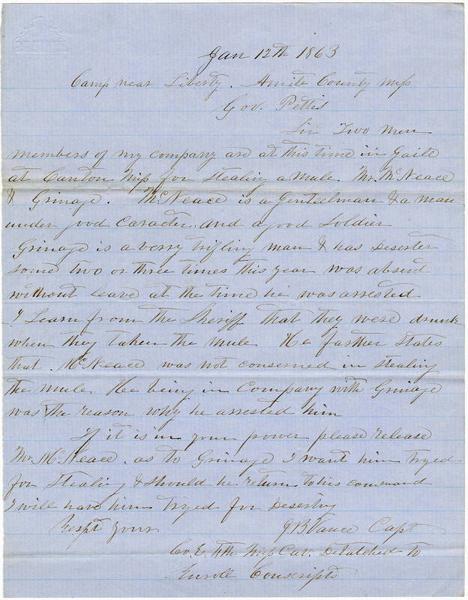 Jan 12th 1863
Camp near Liberty. Amite County Miss
Gov. Pettis
Sir Two men
members of my company are at this time in Gaile
at Canton Miss for Stealing a Mule. Mr. McNeace
& Grinage. McNeace is a Gentelman & a man
under good Caracter. and a good Soldier
Grinage is a verry trifling man & has Deserted
some two or three times this year was absent
without leave at the time he was arrested
I Learn from the Sheriff that they were drunk
when they taken the mule He farther States
that McNeace was not conserned in stealing
the mule. He being in Company with Grinage
was the reason why he arrested him
If it is in your power please release
Mr. McNeace. as to Grinage I want him tryed
for Stealing & should he return to his command
I will have him tryed for Deserting
Respt yours
J B Vance Capt
Co. E. 4th Miss Cav. Detatched to
Enroll Conscripts